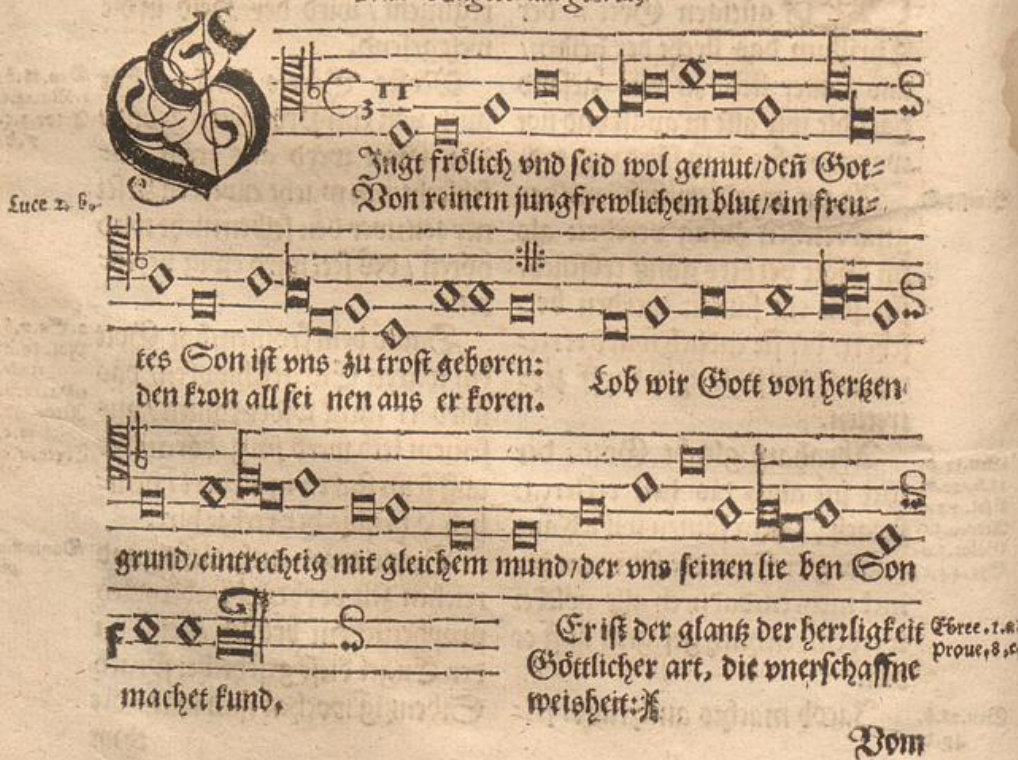 SIngt frölich vnd seid wol gemut/deñ Got-
Von reinem jungfrewlichem blut/ein freu-
Luce 2. b.
tes Son ist vns zu trost geboren:
den kron all sei nen aus er koren.
Lob wir Gott von hertzen
grund/eintrechtig mit gleichem mund/der vns seinen lie ben Son
machet kund.
Er ist der glantz der herrligkeit
Göttlicher art, die vnerschaffne
weisheit:
Ebree.1.a
Proue.8.c
Vom